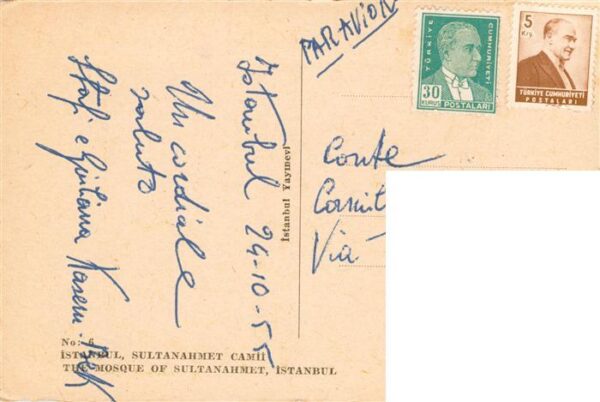 Istanbul 24-10-55
Un cordiale
saluto
e Giuliana
PAR AVION
TÜRKİYE CUMHURİYETİ
30
KURUŞ
POSTALARI
5
Krş.
TÜRKİYE CUMHURİYETİ
POSTALARI
İstanbul Yayınevi
Conte
Via
No: 6
İSTANBUL, SULTANAHMET CAMİİ
THE MOSQUE OF SULTANAHMET, İSTANBUL